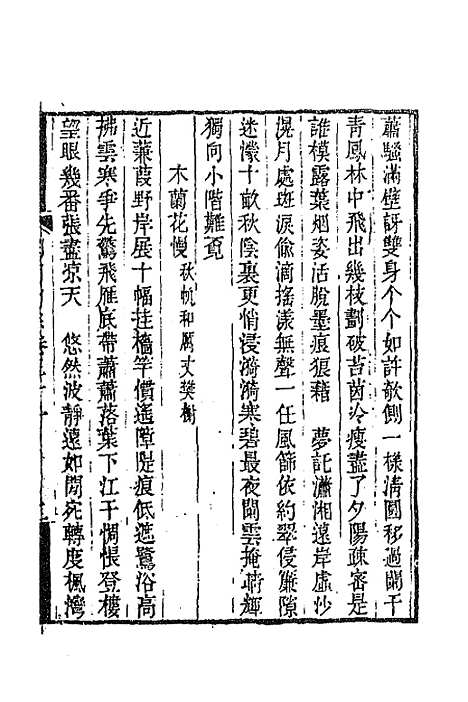 蕭騷滿壁訝雙身个个如許欹側一樣清圓移過闌干
青鳳林中飛出幾枝劃破苔茵冷瘦盡了夕陽疎密是
誰模露葉烟姿活脫墨痕狼藉　夢託瀟湘遠岸虛沙
滉月處斑淚偷滴搖漾無聲一任風篩依約翠侵簾隙
迷濛十畝秋陰裏更悄浸漪漪寒碧最夜闌雲掩晴輝
獨向小階難覓
木蘭花慢秋帆和厲丈樊榭
近蒹葭野岸展十幅挂檣竿價遙障踶痕低遮鷺浴高
拂雲寒爭先鶩飛雁底帶蕭蕭落葉下江干惆悵登樓
望眼幾番張盡凉天　悠然波靜遠如閒宛轉度楓灣